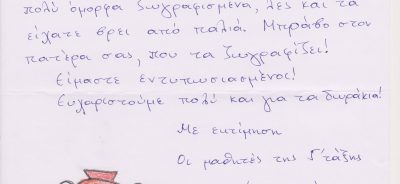 πολύ όμορφα ζωγραφισμένα, λες και τα
είχατε βρει από παλιά. Μπράβο στον
πατέρα σας, που τα ζωγραφίζει!
Είμαστε εντυπωσιασμένοι!
Ευχαριστούμε πολύ και για τα δωράκια!
Με εκτίμηση
Οι μαθητές της Γ' τάξης